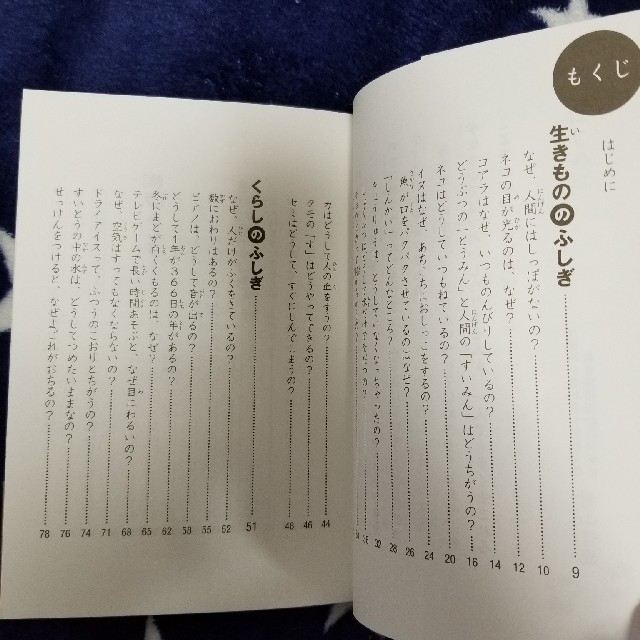 もくじ
はじめに
生きもののふしぎ 9
なぜ、人間にはしっぽがないの? 10
ネコの目が光るのは、なぜ? 12
コアラはなぜ、いつものんびりしているの? 14
どうぶつの「とうみん」と人間の「すいみん」はどうちがうの? 16
ネコはどうしていつもねているの? 20
イヌはなぜ、あちこちにおしっこをするの? 24
魚が口をパクパクさせているのはなぜ? 26
「しんかい」ってどんなところ? 28
どうしていなくなっちゃったの? 32
カはどうして人の血をすうの? 44
クモの「す」はどうやってできるの? 46
セミはどうして、すぐにしんでしまうの? 48
くらしのふしぎ 51
なぜ、人だけがふくをきているの? 52
数におわりはあるの? 55
ピアノは、どうして音が出るの? 58
どうして1年が366日の年があるの? 62
冬にまどがくもるのは、なぜ? 65
テレビゲームで長い時間あそぶと、なぜ目にわるいの? 68
なぜ、空気はすってもなくならないの? 71
ドライアイスって、ふつうのこおりとちがうの? 74
すいとうの中の水は、どうしてつめたいままなの? 76
せっけんをつけると、なぜよごれがおちるの? 78